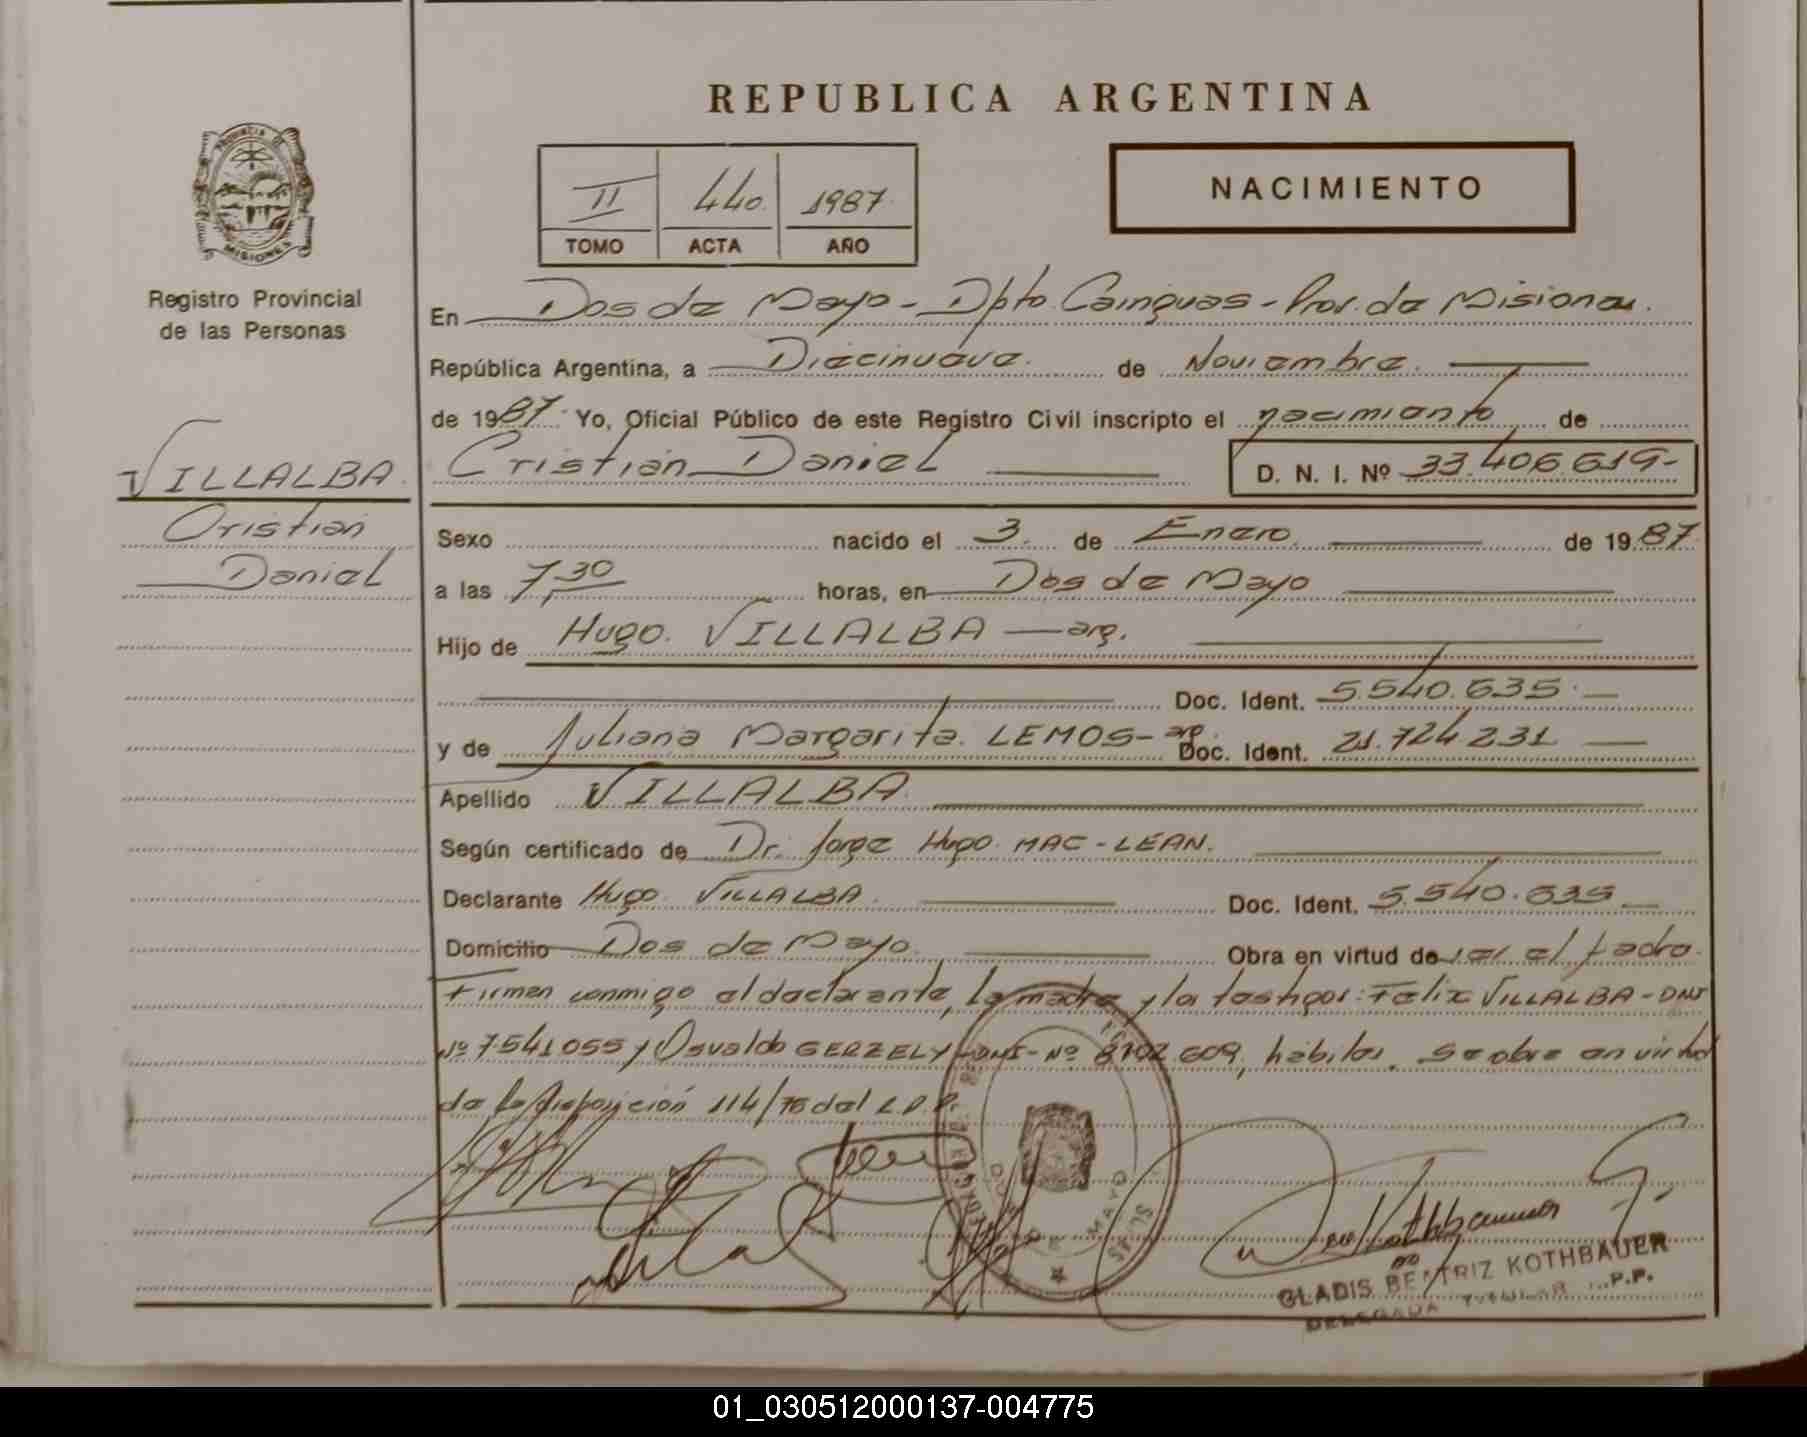 REPUBLICA ARGENTINA
PROVINCIA DE
MISIONES
Registro Provincial
de las Personas
II 440 1987
TOMO ACTA AÑO
NACIMIENTO
En Dos de Mayo - Dpto. Cainguas - Prov. de Misiones.
República Argentina, a Diecinueve de Noviembre.
de 1987. Yo, Oficial Público de este Registro Civil inscripto el nacimiento de
VILLALBA
Cristian Daniel D. N. I. Nº 33.406.619-
Cristian
Daniel
Sexo nacido el 3. de Enero. de 1987.
a las 7,30 horas, en Dos de Mayo
Hijo de Hugo. VILLALBA — arg.
Doc. Ident. 5.540.635.
y de Juliana Margarita. LEMOS - arg. Doc. Ident. 21.724.231
Apellido VILLALBA.
Según certificado de Dr. Jorge Hugo. MAC-LEAN.
Declarante Hugo. VILLALBA. Doc. Ident. 5.540.635
Domicilio Dos de Mayo. Obra en virtud de ser el padre.
Firman conmigo el declarante, la madre y los testigos: Felix VILLALBA - DNI
Nº 7541055 y Osvaldo GERZELY - DNI - Nº 8702.609, hábiles. Se obra en virtud
de la disposición 114/76 del R.P.P.
DOS DE MAYO
GLADIS BEATRIZ KOTHBAUER
DELEGADA TITULAR R.P.P.
01_030512000137-004775